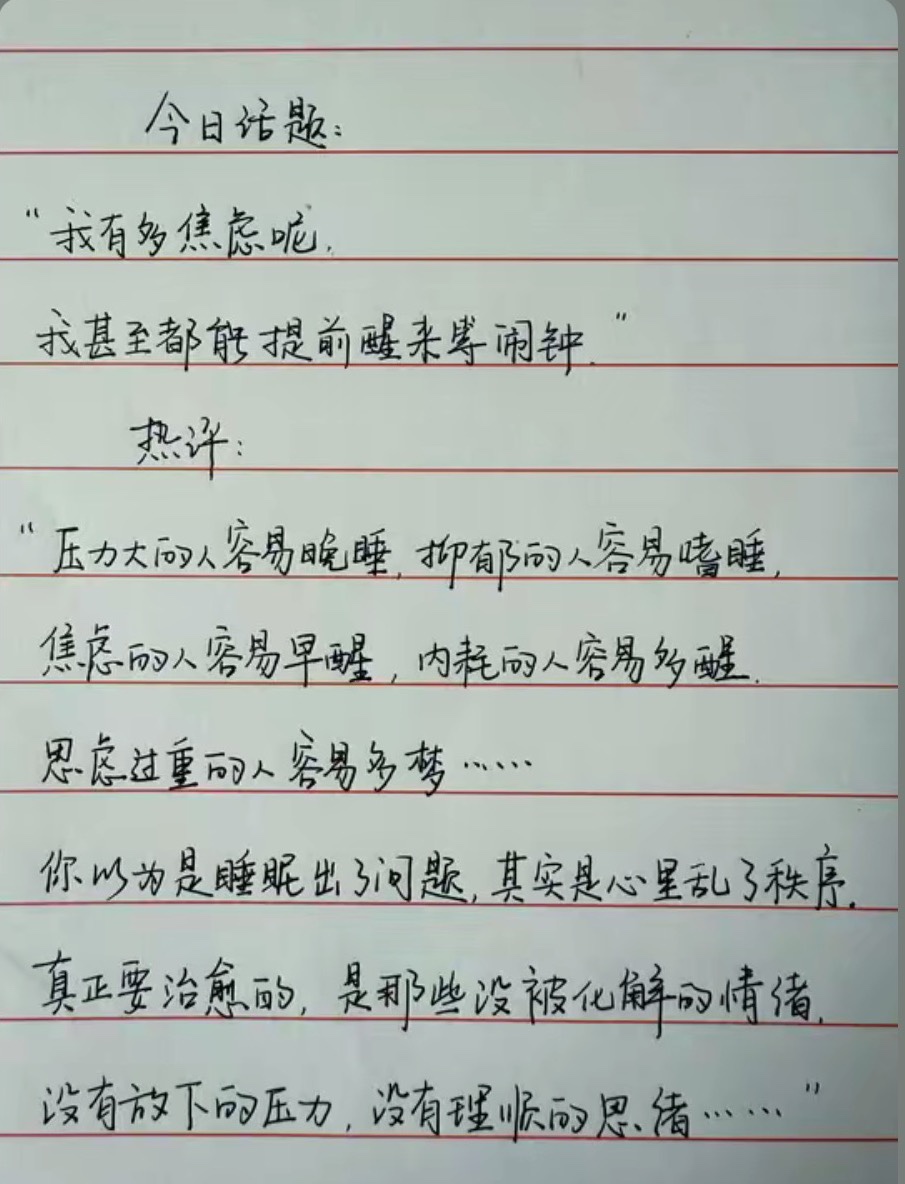 今日话题：
“我有多焦虑呢.
我甚至都能提前醒来等闹钟.”
热评：
“压力大的人容易晚睡,抑郁的人容易嗜睡,
焦虑的人容易早醒,内耗的人容易多醒.
思虑过重的人容易多梦……
你以为是睡眠出了问题,其实是心里乱了秩序.
真正要治愈的,是那些没被化解的情绪.
没有放下的压力,没有理顺的思绪……”